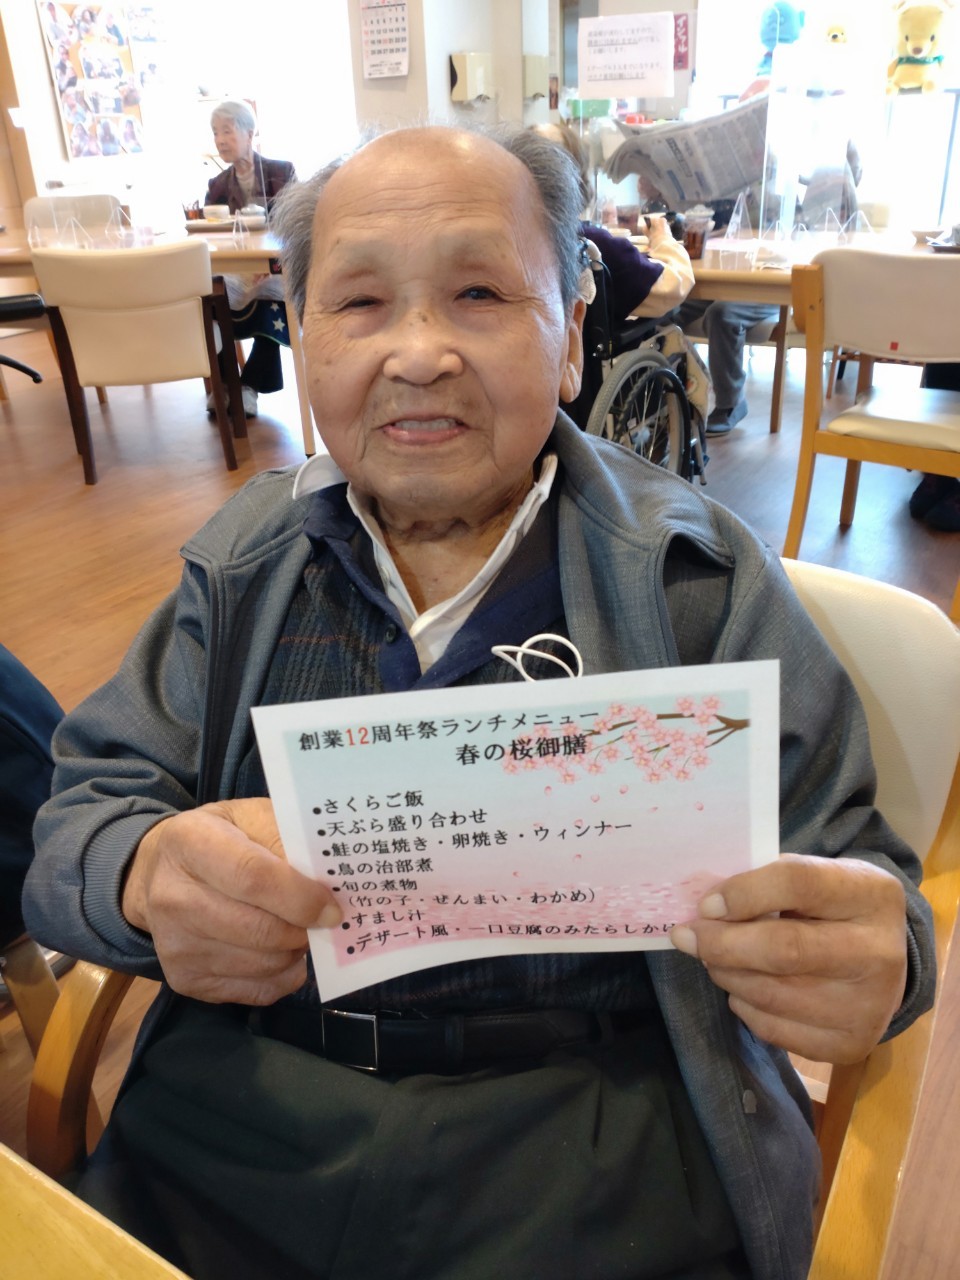 創業12周年祭ランチメニュー
春の桜御膳
●さくらご飯
●天ぷら盛り合わせ
●鮭の塩焼き・卵焼き・ウィンナー
●鳥の治部煮
●旬の煮物
（竹の子・ぜんまい・わかめ）
●すまし汁
●デザート風・一口豆腐のみたらしかけ